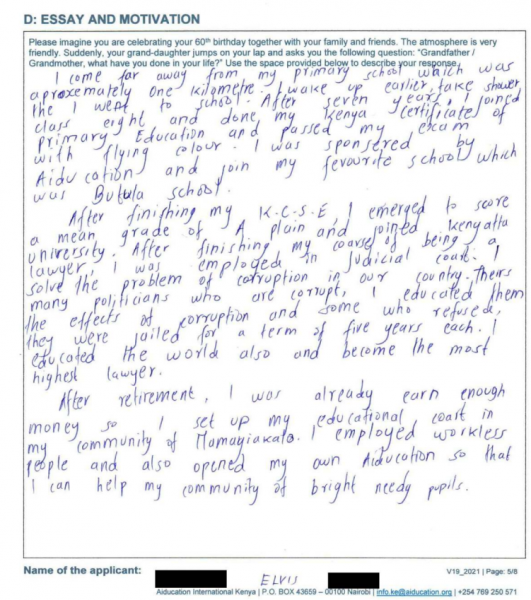 D: ESSAY AND MOTIVATION
Please imagine you are celebrating your 60th birthday together with your family and friends. The atmosphere is very
friendly. Suddenly, your grand-daughter jumps on your lap and asks you the following question: "Grandfather /
Grandmother, what have you done in your life?" Use the space provided below to describe your response.
I come far away from my primary school which was
aproxemately one kilometre. I wake up earlier, take shower
the I went to school. After seven years, I joined
class eight and done, my Kenya certificate of
Primary Education and passed my exam
with flying colour. I was sponsered by
Aiducation and join my fevourite school which
was Butula school.
After finifhing my K.C.S.E, I emerged to score
a mean grade of A plain and joined Kenyatta
university. After finishing my coarse of being a
lawyer, I was employed in Judicial coart. I
solve the problem of corruption in our country. Theirs
many politicians who are corrupt, I educated them
the effects of corruption and some who refused,
they were jailed for a term of five years each. I
educated the world also and become the most
highest lawyer.
After retirement, I was already earn enough
money so I set up my educational coart in
my community of Mamagiakalo. I employed workless
people and also opened my own Aiducation so that
I can help my community of bright needy pupils.
Name of the applicant:
ELVIS
V19_2021 | Page: 5/8
Aiducation International Kenya | P.O. BOX 43659 – 00100 Nairobi | info.ke@aiducation.org | +254 769 250 571